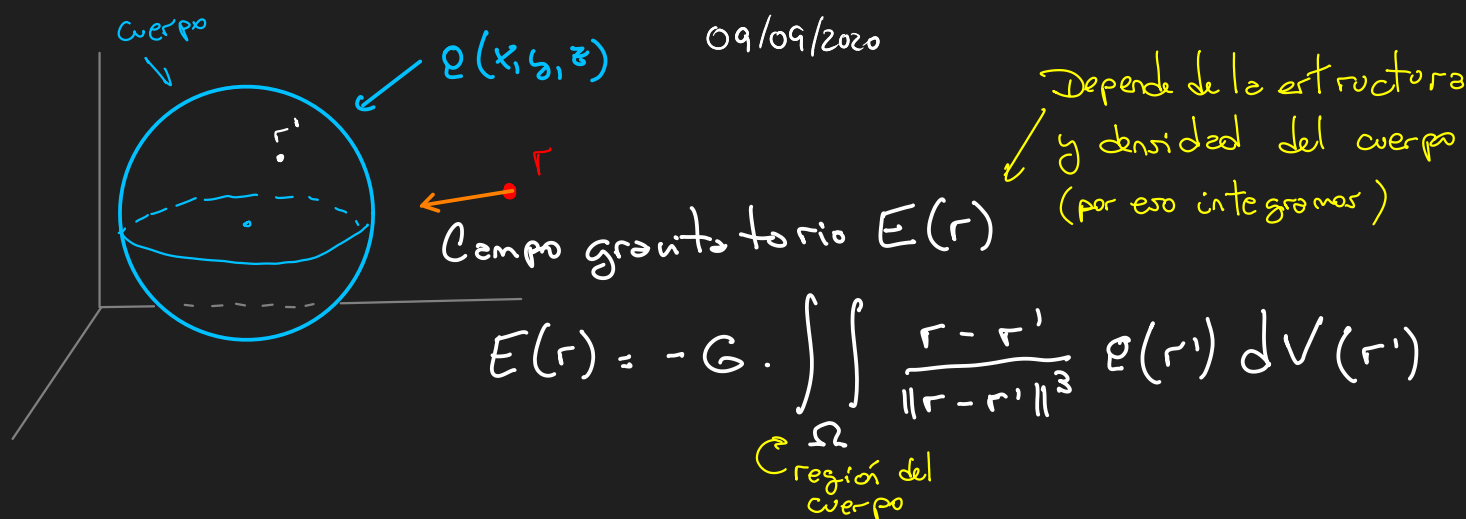 cuerpo
ϱ(x,y,z)
09/09/2020
r'
r
Depende de la estructura
y densidad del cuerpo
(por eso integramos)
Campo gravitatorio E(r)
E(r) = -G · ∬_Ω (r - r')/‖r - r'‖³ ϱ(r') dV(r')
región del
cuerpo